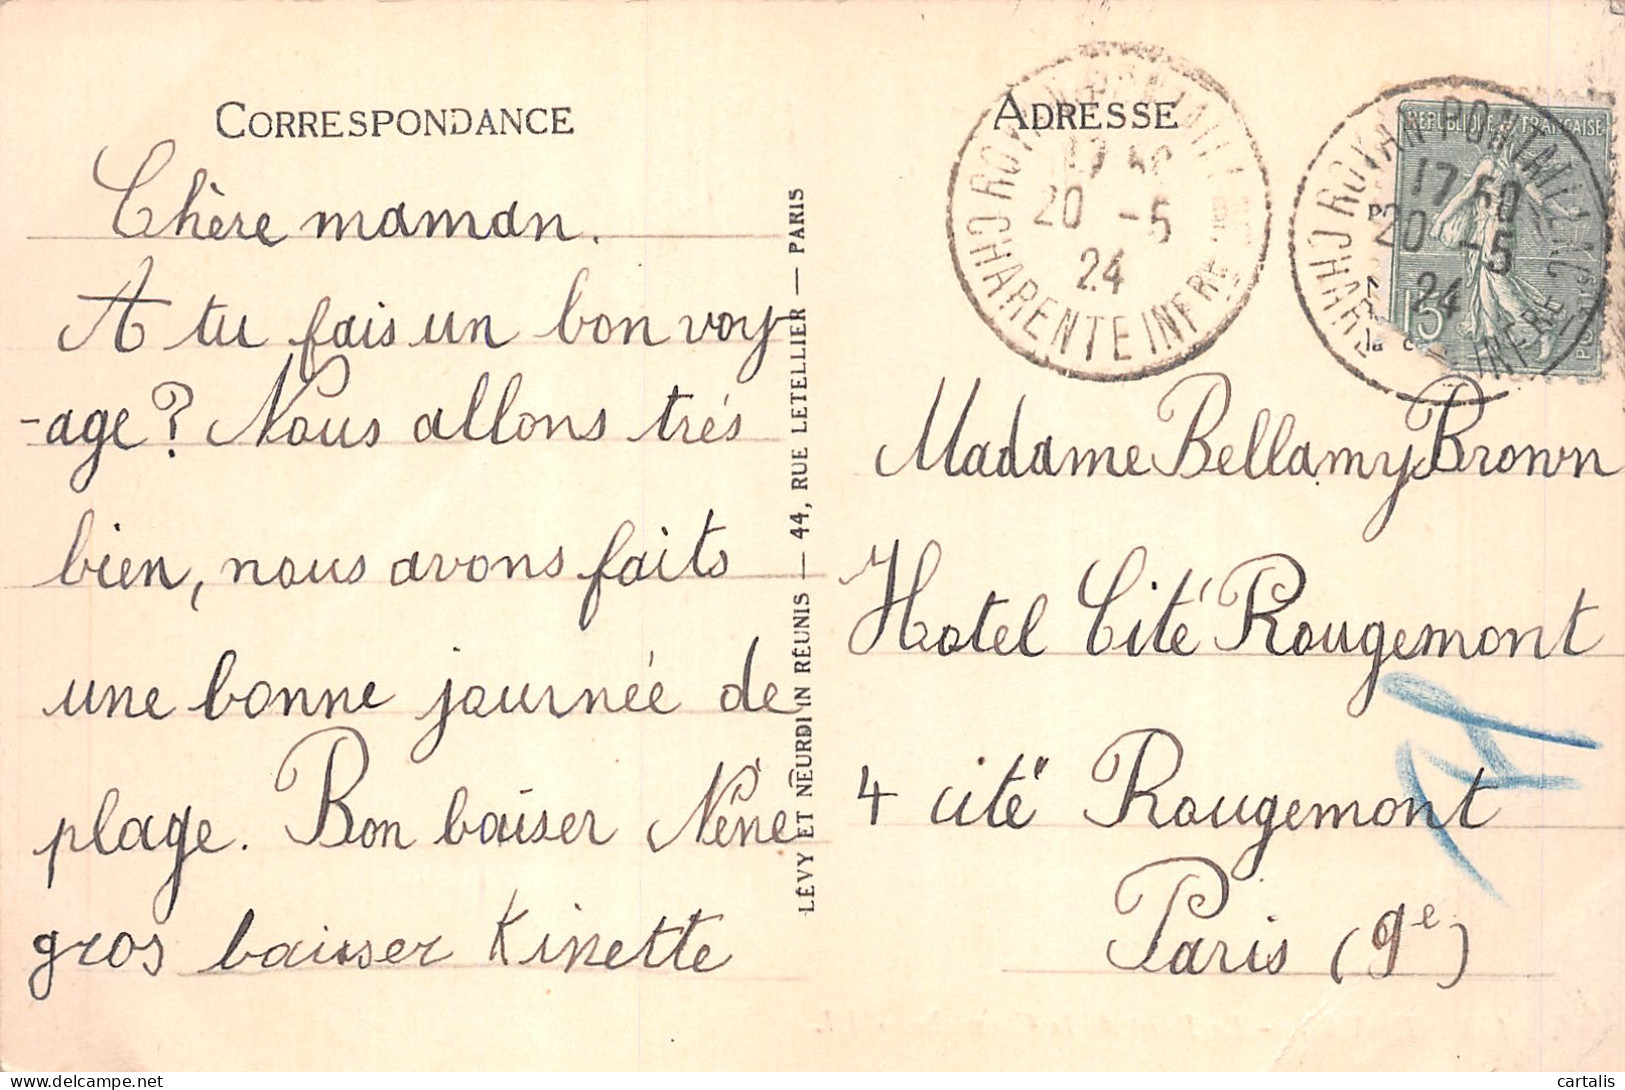 CORRESPONDANCE
Chère maman.
A tu fais un bon voy-
-age? Nous allons trés
bien, nous avons faits
une bonne journée de
plage. Bon baiser Nène
gros baiser Kinette
LÉVY ET NEURDEIN RÉUNIS — 44, RUE LETELLIER — PARIS
ADRESSE
ROYAN-PONTAILLAC
17 50
20 -5
24
CHARENTE INFRE
REPUBLIQUE FRANÇAISE
15
ROYAN-PONTAILLAC
17 50
20 -5
24
Madame Bellamy Brown
Hotel Cité Rougemont
4 cité Rougemont
Paris (9e)
cartalis